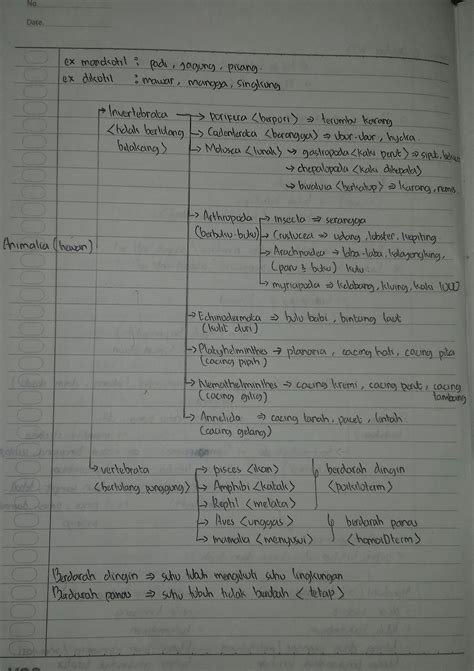 No.
Date.
ex monokotil : padi, jagung, pisang.
ex dikotil : mawar, mangga, singkong
Animalia (hewan)
→ Invertebrata <tidak bertulang belakang>
→ porifera <berpori> ⇒ terumbu karang
→ Coelenterata <berongga> ⇒ ubur-ubur, hydra
→ Molusca <lunak> → gastropoda <kaki perut> ⇒ siput,
→ chepalopoda <kaki dikepala>
→ bivalvia <berkatup> ⇒ karang, remis
→ Arthropoda (berbuku-buku)
→ Insecta ⇒ serangga
→ Crustucea ⇒ udang, lobster, kepiting
→ Arachnoidea ⇒ laba-laba, kalajengking,
(paru² buku) kutu
→ myriapoda ⇒ kelabang, kluing, kaki 1000
→ Echinodermata ⇒ bulu babi, bintang laut
(kulit duri)
→ Platyhelminthes ⇒ planaria, cacing hati, cacing pita
(cacing pipih)
→ Nemathelminthes ⇒ cacing kremi, cacing perut, cacing tambang
(cacing gilig)
→ Annelida ⇒ cacing tanah, pacet, lintah
(cacing gelang)
→ vertebrata <bertulang punggung>
→ pisces <ikan>
→ Amphibi <katak>
→ Reptil <melata>
berdarah dingin
<poikiloterm>
→ Aves <unggas>
→ mamalia <menyusui>
berdarah panas
<homoiOterm>
Berdarah dingin ⇒ suhu tubuh mengikuti suhu lingkungan
Berdarah panas ⇒ suhu tubuh tidak berubah < tetap>